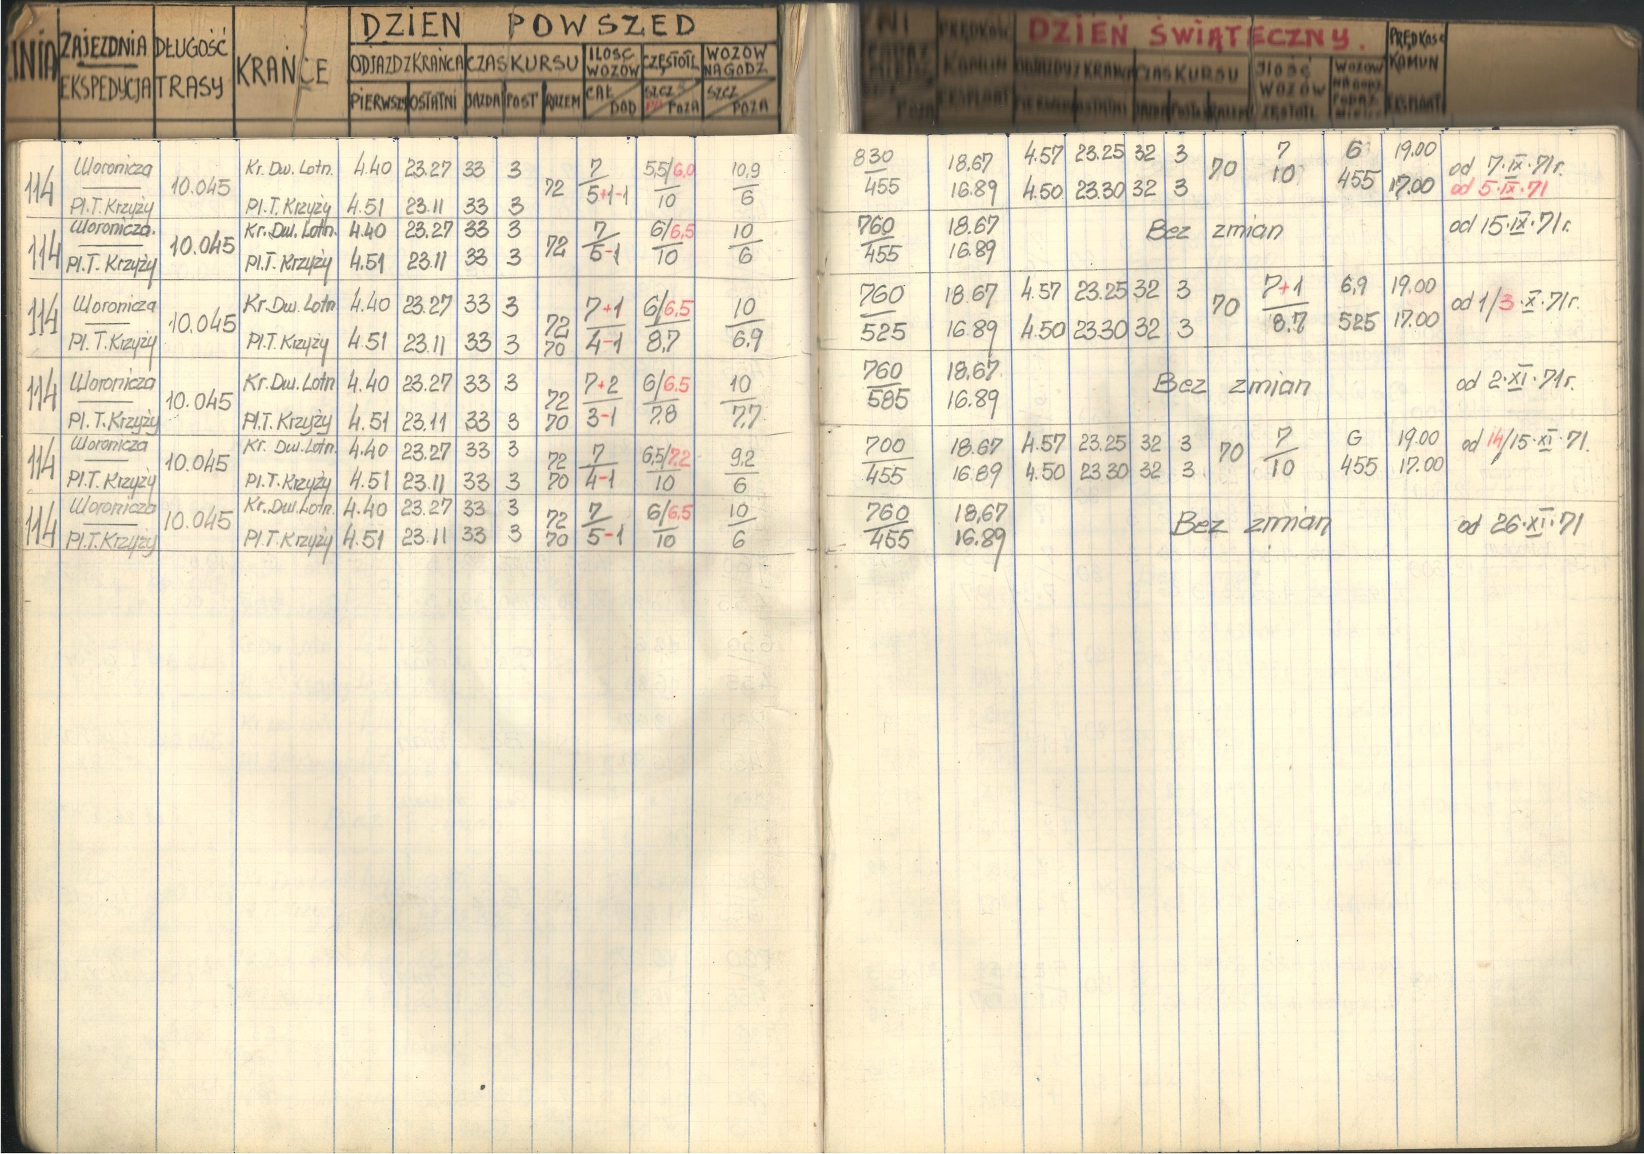 DZIEŃ POWSZED
NI DZIEŃ ŚWIĄTECZNY.
LINIA ZAJEZDNIA DŁUGOŚĆ KRAŃCE ODJAZD Z KRAŃCA CZAS KURSU ILOŚĆ WOZÓW CZĘSTOTL WOZÓW NA GODZ
EKSPEDYCJA TRASY PIERWSZY OSTATNI JAZDA POST RAZEM CAŁ DOD SZCZ POZA SZCZ POZA
PRĘDKOŚĆ KOMUN EKSPLOAT ODJAZDY Z KRAŃCA CZAS KURSU ILOŚĆ WOZÓW WOZÓW NA GODZ PRĘDKOŚĆ KOMUN EKSPLOAT
114 Woronicza 10.045 Kr. Dw. Lotn. 4.40 23.27 33 3 72 7 5,5/6,0 10,9 830 18.67 4.57 23.25 32 3 70 7 6 19.00 od 7.IX.71r.
Pl. T. Krzyży Pl. T. Krzyży 4.51 23.11 33 3 5+1-1 10 6 455 16.89 4.50 23.30 32 3 10 455 17.00 od 5.IX.71
114 Woronicza. 10.045 Kr. Dw. Lotn. 4.40 23.27 33 3 72 7 6/6,5 10 760 18.67 Bez zmian od 15.IX.71r.
Pl. T. Krzyży Pl. T. Krzyży 4.51 23.11 33 3 5-1 10 6 455 16.89
114 Woronicza 10.045 Kr. Dw. Lotn 4.40 23.27 33 3 72 7+1 6/6,5 10 760 18.67 4.57 23.25 32 3 70 7+1 6,9 19.00 od 1/3.X.71r.
Pl. T. Krzyży Pl. T. Krzyży 4.51 23.11 33 3 70 4-1 8,7 6,9 525 16.89 4.50 23.30 32 3 8.7 525 17.00
114 Woronicza 10.045 Kr. Dw. Lotn 4.40 23.27 33 3 72 7+2 6/6,5 10 760 18.67. Bez zmian od 2.XI.71r.
Pl. T. Krzyży Pl. T. Krzyży 4.51 23.11 33 3 70 3-1 7,8 7,7 585 16.89
114 Woronicza 10.045 Kr. Dw. Lotn. 4.40 23.27 33 3 72 7 6,5/7,2 9,2 700 18.67 4.57 23.25 32 3 70 7 6 19.00 od 14/15.XI.71.
Pl. T. Krzyży Pl. T. Krzyży 4.51 23.11 33 3 70 4-1 10 6 455 16.89 4.50 23.30 32 3 10 455 17.00
114 Woronicza 10.045 Kr. Dw. Lotn. 4.40 23.27 33 3 72 7 6/6,5 10 760 18,67 Bez zmian od 26.XI.71
Pl. T. Krzyży Pl. T. Krzyży 4.51 23.11 33 3 70 5-1 10 6 455 16.89